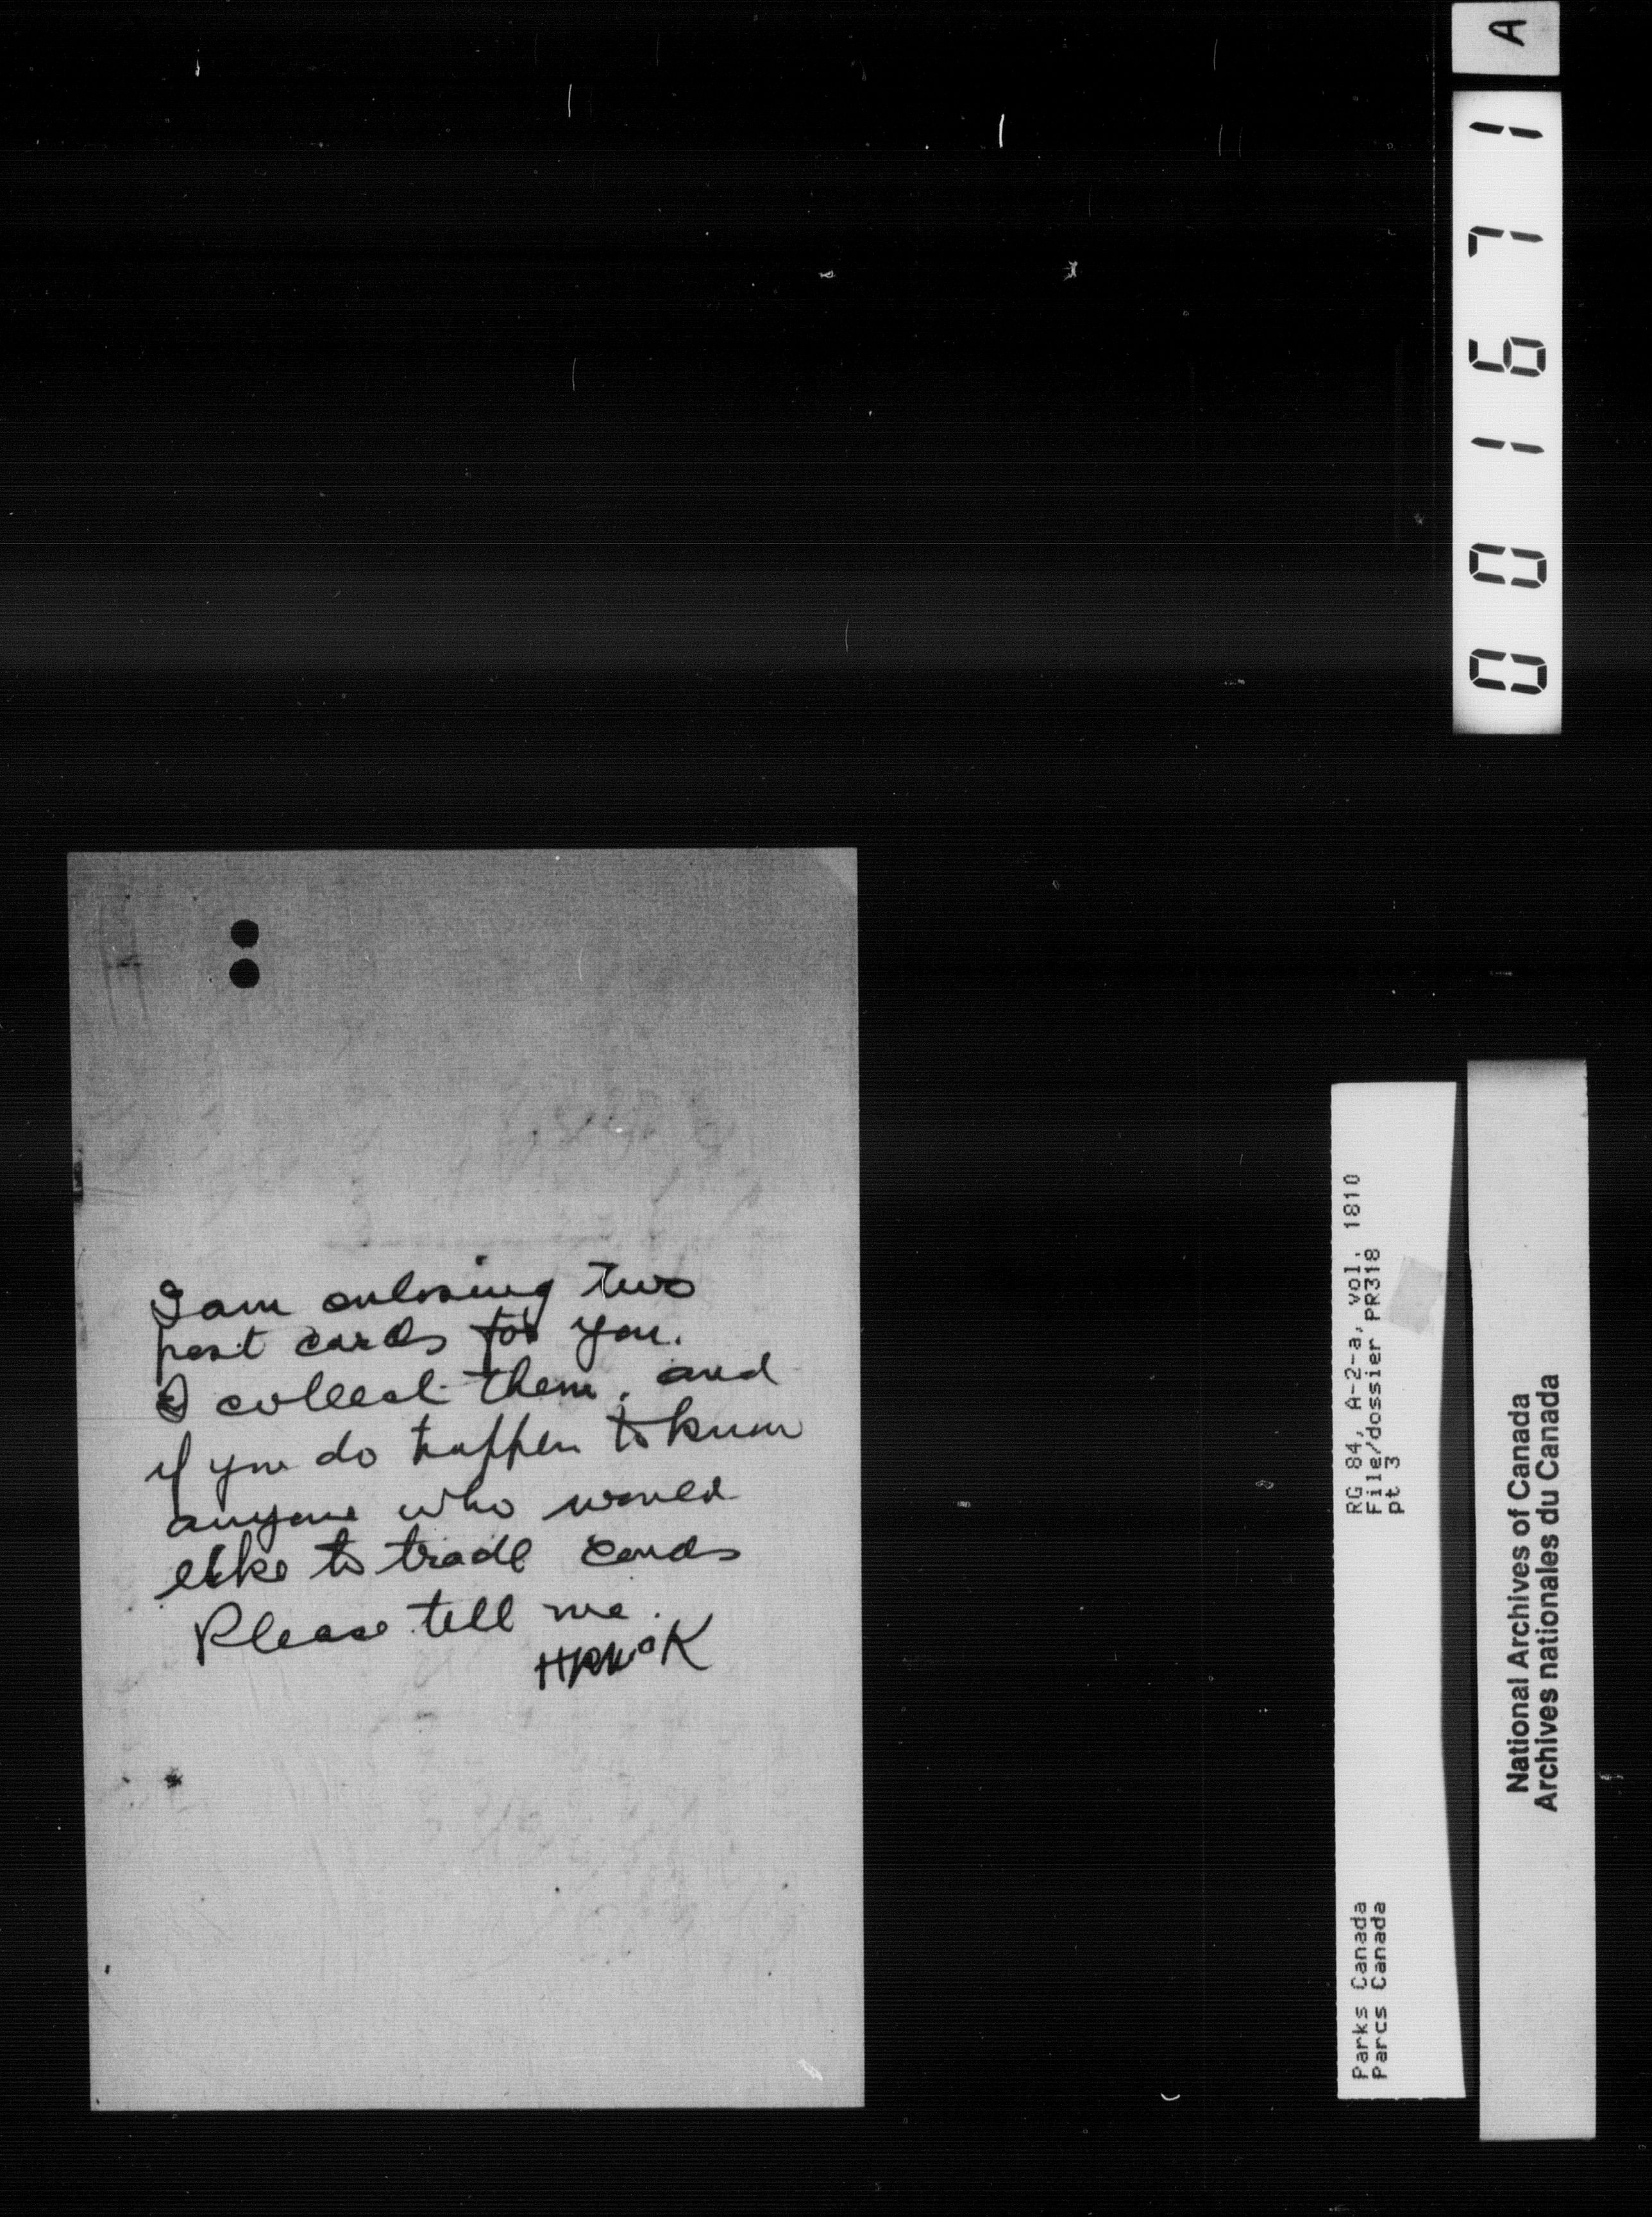 I am enlosing two
post cards for you.
I collect them, and
if you do happen to know
anyone who would
like to trade cards
Please tell me.
A
001671
RG 84, A-2-a, Vol. 1810
File/dossier PR318
pt 3
Parks Canada
Parcs Canada
National Archives of Canada
Archives nationales du Canada